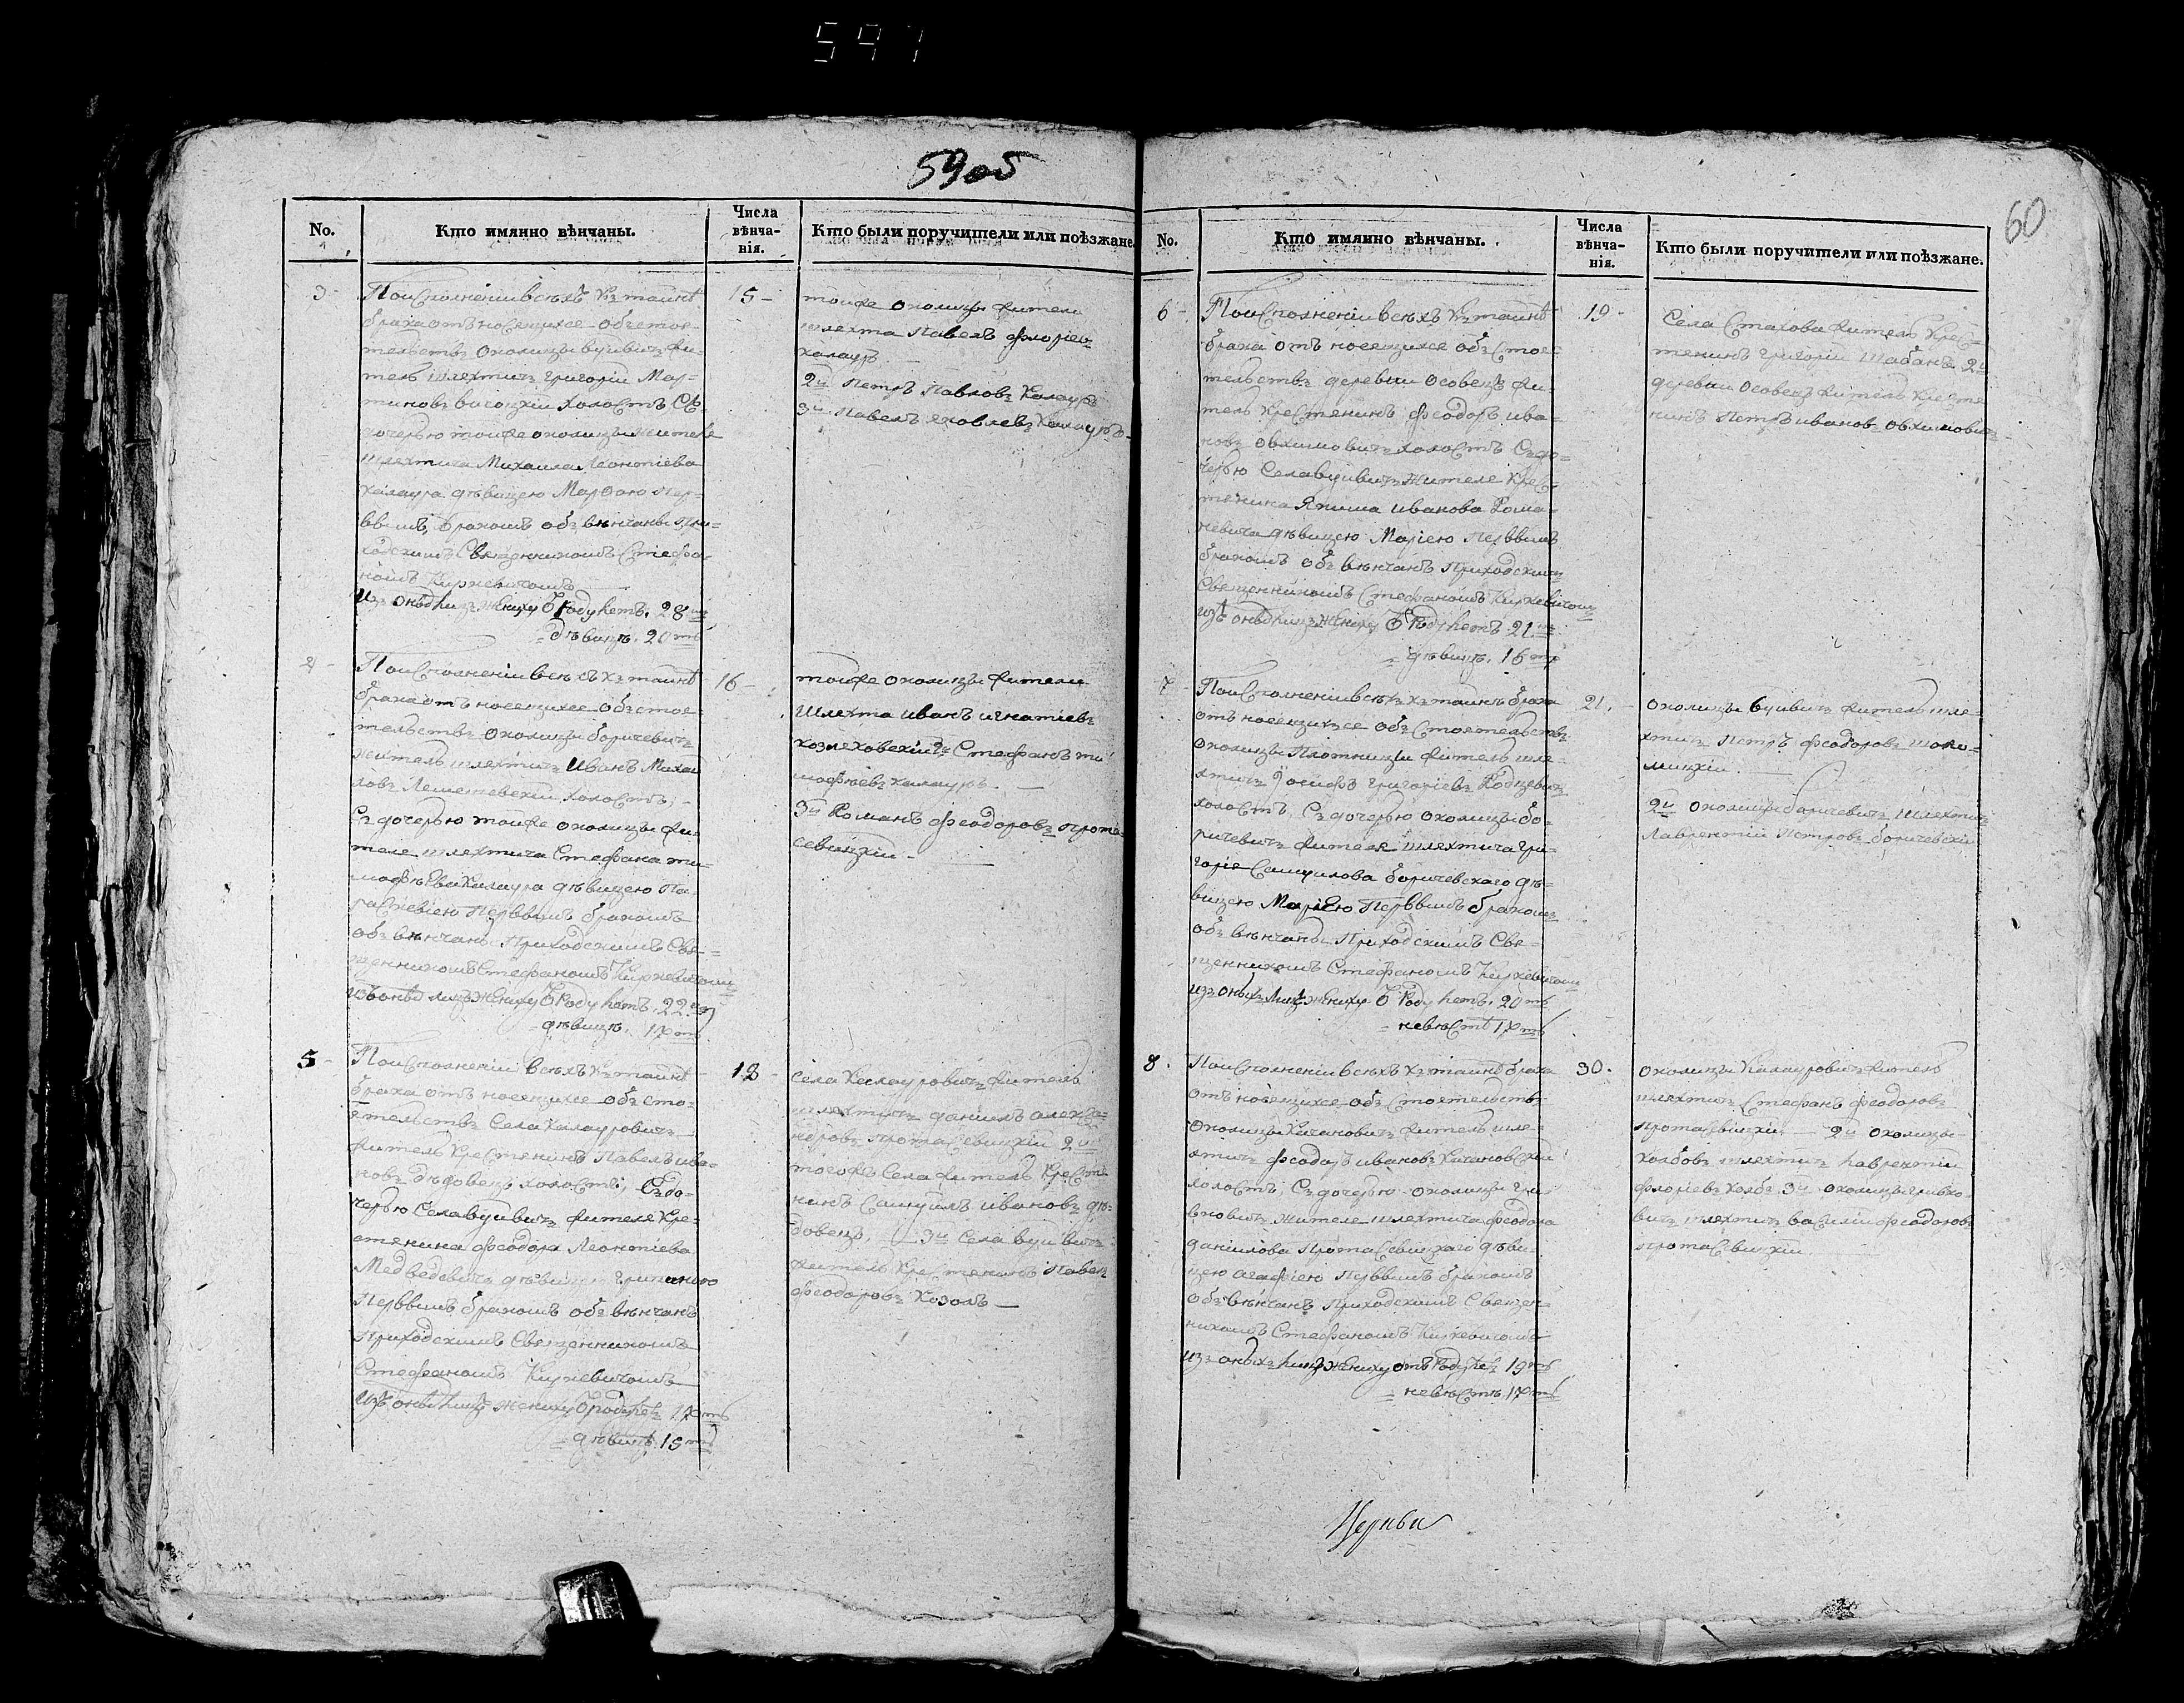 541
59об
No.
Кто имянно вѣнчаны.
Числа
вѣнча-
нія.
Кто были поручители или поѣзжане.
3
Поисполненіи всѣхъ къ таинѣ
брака отъ носящихсе обстое-
тельствъ околицы вуивичъ жи-
тель шляхтичъ григорій Мар-
тиновъ высоцкій холостъ съ
дочерью тойже околицы жителя
шляхтича Михаила Леонтіева
калаура дѣвицею Марѳою пер-
ввымъ бракомъ обвѣнчаны при-
ходскимъ священникомъ Стефа-
номъ Киркевичомъ
Изъ оныхъ лицъ жениху Ѿ роду летъ. 28
дѣвицѣ. 20ть
15
тойже околицы жители
шляхта Павелъ флоріевъ
калауръ
2й Петръ Павловъ Калауръ
3й Павелъ яковлевъ Калауръ
4
Поисполненіи всѣхъ къ таинѣ
брака отъ носящихсе обстое-
тельствъ околицы боричевичъ
житель шляхтичъ Иванъ Михаи
ловъ Лешевскій холостъ,
Съ дочерью тойже околицы жи-
теле шляхтича Стефана ти-
мофѣева Калаура дѣвицею Па
раскевіею перввымъ бракомъ
обвѣнчаны Приходскимъ Све-
щенникомъ Стефаномъ Киркевичомъ
изъ оныхъ лицъ жениху Ѿ роду летъ. 22
дѣвицѣ. 17ть
16
тойже околицы жители
Шляхта иванъ игнатіевъ
козляковскій 2й Стефанъ ти
мофѣевъ калауръ.
3й Романъ феодоровъ прота-
севицкій
5
Поисполненіи всѣхъ къ таинѣ
брака отъ носящихсе обсто-
ятельствъ Села Калауровичъ
житель крестенинъ Павелъ ива-
новъ дѣдовецъ холостъ, Съ до-
черью Села вуивичъ жителя Кре-
стянина феодора Леонтіева
Медведевича дѣвицею Гриппиною
Перввымъ бракомъ обвѣнчанъ
Приходскимъ Священникомъ
Стефаномъ Киркевичомъ
Изъ оныхъ лицъ жениху Ѿ роду летъ 17ть
дѣвицѣ 15ть
18
села Калауровичъ житель
шляхтичъ даніилъ алекса-
ндровъ протасевицкій 2й
тогожъ Села житель Кресте
нинъ Самуилъ ивановъ дѣ-
довецъ. 3й села вуивичъ
житель крестенинъ Павелъ
феодоровъ Козолъ
60
No.
Кто имянно вѣнчаны.
Числа
вѣнча-
нія.
Кто были поручители или поѣзжане.
6
Поисполненіи всѣхъ къ таинѣ
брака отъ носящихсе обстое-
тельствъ деревни Осовецъ жи-
тель крестенинъ феодоръ ива-
новъ овхимовичъ холостъ Съ до-
черью Села вуивичъ жителе крес-
тенина Якима иванова Рома-
невича дѣвицею Маріею перввымъ
бракомъ обвѣнчанъ Приходскимъ
Священникомъ Стефаномъ Киркевичомъ
изъ оныхъ лицъ жениху Ѿ роду летъ 21
дѣвицѣ. 16ть
19
Села Стахова житель Крес-
тенинъ григорій Шабанъ 2й
деревни Осовецъ житель кресте
нинъ Петръ ивановъ овхимовичъ
7
Поисполненіи всѣхъ къ таинѣ брака
отъ носящихсе обстоятельствъ
околицы Плотницы житель шле-
хтичъ Іосифъ григоріевъ Родцевичъ
холостъ, Съ дочерью околицы бо-
ричевичъ жителя шляхтича гри-
горіе Самуилова боричевскаго дѣ-
вицею Маріею перввымъ бракомъ
обвѣнчаны Приходскимъ Све-
щенникомъ Стефаномъ Киркевичомъ
изъ оныхъ лицъ жениху Ѿ роду летъ. 20ть
невѣстѣ 17ть
21.
околицы вуивичъ житель шле-
хтичъ Петръ феодоровъ шоло-
мицкій.
2й околицы боричевичъ шляхтичъ
Лаврентій Петровъ боричевскій
8.
Поисполненіи всѣхъ къ таинѣ брака
отъ носящихсе обстоятельствъ
околицы Качановичъ житель шле-
хтичъ феодоръ ивановъ Качановскій
холостъ, Съ дочерью околицы гри-
вковичъ жителе шляхтича феодора
даніилова Протасевицкаго дѣви-
цею агафіею Перввымъ бракомъ
обвѣнчанъ Приходскимъ Свещен-
никомъ Стефаномъ Киркевичомъ
изъ оныхъ лицъ жениху отъ роду летъ 19ть
невѣстѣ 17ть
30.
околицы Калауровичъ житель
шляхтичъ Стефанъ феодоровъ
протасевицкій 2й околицы
холбовъ шляхтичъ Лаврентій
флоріевъ Колбъ 3й околицы гривко-
вичъ шляхтичъ василій феодоровъ
протасевицкій